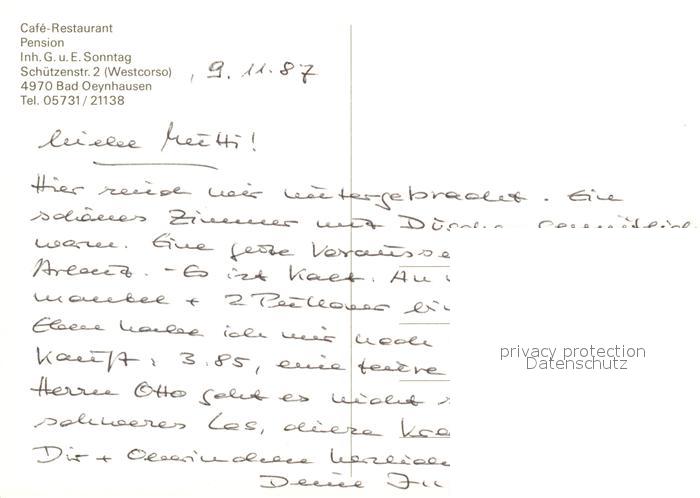 Café-Restaurant
Pension
Inh. G. u. E. Sonntag
Schützenstr. 2 (Westcorso)
4970 Bad Oeynhausen
Tel. 05731 / 21138
, 9. 11. 87
Liebe Mutti!
Hier sind wir untergebracht. Ein
schönes Zimmer mit Dusche, gemütlich
warm. Eine gute
- Es ist kalt.
mantel + 2 Pullover
Eben habe ich mir noch
kauft: 3.85, eine teure
Herrn Otto geht es nicht
schweres Los, diese
Dir +
Deine
privacy protection
Datenschutz